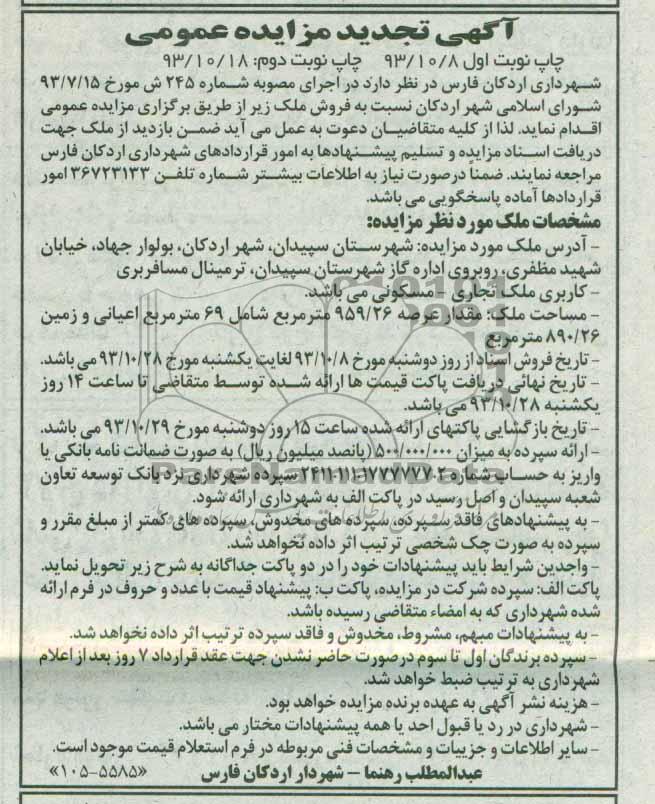 آگهی تجدید مزایده عمومی
چاپ نوبت اول ۹۳/۱۰/۸ چاپ نوبت دوم: ۹۳/۱۰/۱۸
شهرداری اردکان فارس در نظر دارد در اجرای مصوبه شماره ۲۴۵ ش مورخ ۹۳/۷/۱۵
شورای اسلامی شهر اردکان نسبت به فروش ملک زیر از طریق برگزاری مزایده عمومی
اقدام نماید. لذا از کلیه متقاضیان دعوت به عمل می آید ضمن بازدید از ملک جهت
دریافت اسناد مزایده و تسلیم پیشنهادها به امور قراردادهای شهرداری اردکان فارس
مراجعه نمایند. ضمناً درصورت نیاز به اطلاعات بیشتر شماره تلفن ۳۶۷۲۳۱۳۳ امور
قراردادها آماده پاسخگویی می باشد.
مشخصات ملک مورد نظر مزایده:
- آدرس ملک مورد مزایده: شهرستان سپیدان، شهر اردکان، بولوار جهاد، خیابان
شهید مظفری، روبروی اداره گاز شهرستان سپیدان، ترمینال مسافربری
- کاربری ملک تجاری - مسکونی می باشد.
- مساحت ملک: مقدار عرصه ۹۵۹/۲۶ مترمربع شامل ۶۹ مترمربع اعیانی و زمین
۸۹۰/۲۶ مترمربع
- تاریخ فروش اسناد از روز دوشنبه مورخ ۹۳/۱۰/۸ لغایت یکشنبه مورخ ۹۳/۱۰/۲۸ می باشد.
- تاریخ نهائی دریافت پاکت قیمت ها ارائه شده توسط متقاضی تا ساعت ۱۴ روز
یکشنبه ۹۳/۱۰/۲۸ می باشد.
- تاریخ بازگشایی پاکتهای ارائه شده ساعت ۱۵ روز دوشنبه مورخ ۹۳/۱۰/۲۹ می باشد.
- ارائه سپرده به میزان ۵۰۰/۰۰۰/۰۰۰ (پانصد میلیون ریال) به صورت ضمانت نامه بانکی یا
واریز به حساب شماره سپرده شهرداری نزد بانک توسعه تعاون
شعبه سپیدان و اصل رسید در پاکت الف به شهرداری ارائه شود.
- به پیشنهادهای فاقد سپرده، سپرده های مخدوش، سپرده های کمتر از مبلغ مقرر و
سپرده به صورت چک شخصی ترتیب اثر داده نخواهد شد.
- واجدین شرایط باید پیشنهادات خود را در دو پاکت جداگانه به شرح زیر تحویل نماید.
پاکت الف: سپرده شرکت در مزایده، پاکت ب: پیشنهاد قیمت با عدد و حروف در فرم ارائه
شده شهرداری که به امضاء متقاضی رسیده باشد.
- به پیشنهادات مبهم، مشروط، مخدوش و فاقد سپرده ترتیب اثر داده نخواهد شد.
- سپرده برندگان اول تا سوم درصورت حاضر نشدن جهت عقد قرارداد ۷ روز بعد از اعلام
شهرداری به ترتیب ضبط خواهد شد.
- هزینه نشر آگهی به عهده برنده مزایده خواهد بود.
- شهرداری در رد یا قبول احد یا همه پیشنهادات مختار می باشد.
- سایر اطلاعات و جزییات و مشخصات فنی مربوطه در فرم استعلام قیمت موجود است.
عبدالمطلب رهنما - شهردار اردکان فارس «۱۰۵-۵۵۸۵»
ParsNamadData